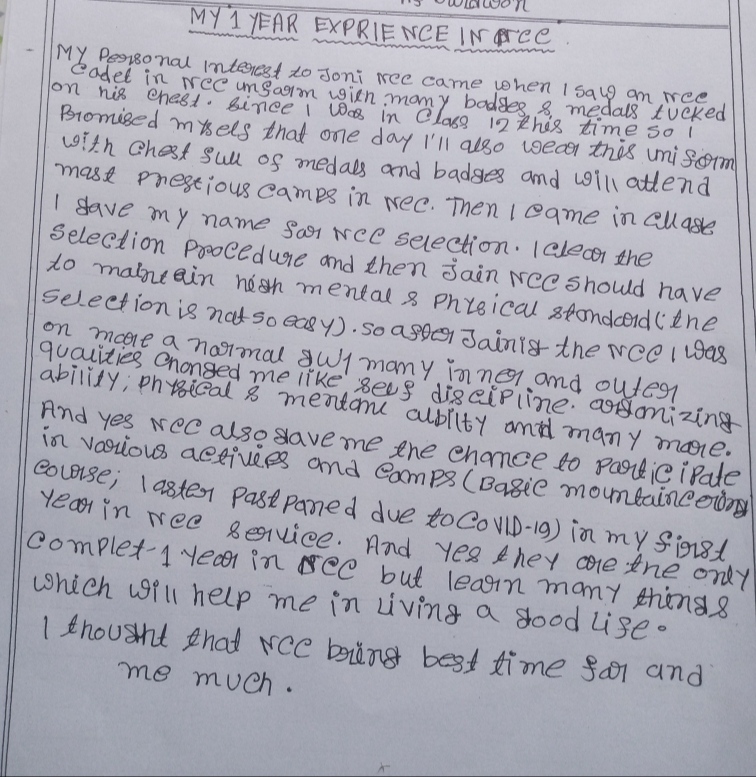 MY 1 YEAR EXPRIENCE IN NCC.
MY Personal Interest to Joni NCC came when I saw an NCC
Cadet in NCC unform with many badges & medals tucked
on his chest. Since I was in Class 12 this time so I
Bromised myself that one day I'll also wear this uniform
with chest full of medals and badges and will attend
mast prestious camps in NCC. Then I came in Collage
I gave my name for NCC selection. I clear the
Selection Procedure and then Join NCC should have
to maintain high mental & Physical standard (the
Selection is not so easy). So after Joinig the NCC I was
on more a normal gwy many inner and outer
qualities changed me like self discipline. organizing
ability; physical & mentane albilty and many more.
And yes NCC also gave me the chance to participate
in various activies and camps (Basic mountaineering
course; laster Pastpaned due to COVID-19) in my first
Year in NCC service. And yes they are the only
Complet-1 year in NCC but learn many things
which will help me in living a good life.
I thought that NCC bring best time for and
me much.